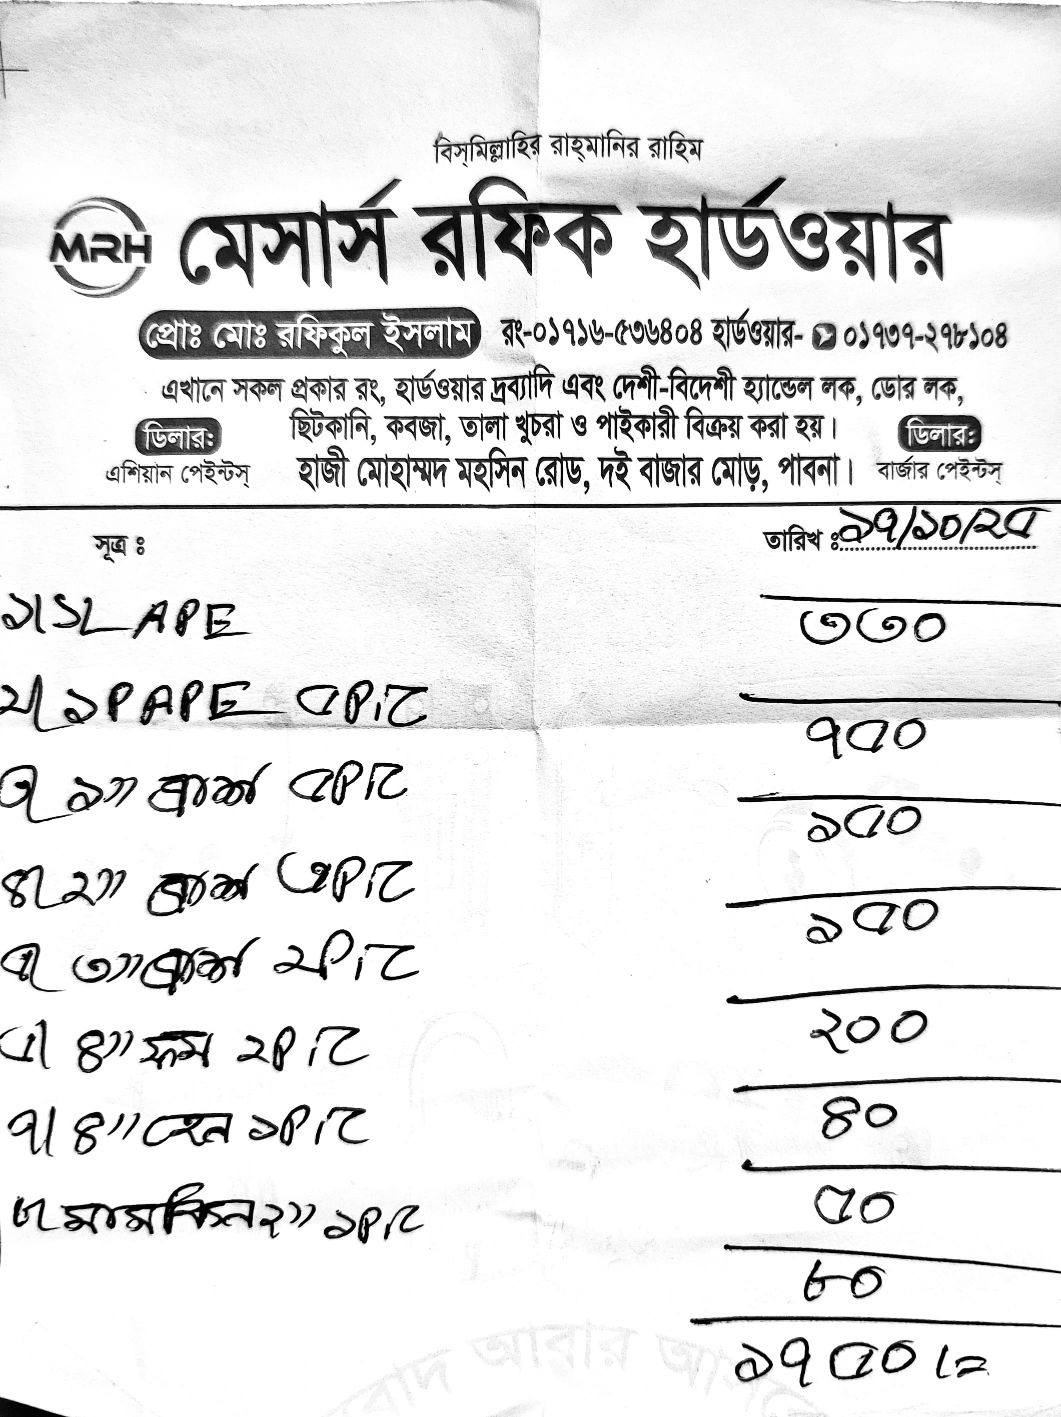 বিস্‌মিল্লাহির রাহ্‌মানির রাহিম
MRH মেসার্স রফিক হার্ডওয়ার
প্রোঃ মোঃ রফিকুল ইসলাম রং-০১৭১৬-৫৩৬৪০৪ হার্ডওয়ার- ০১৭৩৭-২৭৮১০৪
এখানে সকল প্রকার রং, হার্ডওয়ার দ্রব্যাদি এবং দেশী-বিদেশী হ্যান্ডেল লক, ডোর লক,
ডিলার: ছিটকানি, কবজা, তালা খুচরা ও পাইকারী বিক্রয় করা হয়। ডিলার:
এশিয়ান পেইন্টস্ হাজী মোহাম্মদ মহসিন রোড, দই বাজার মোড়, পাবনা। বার্জার পেইন্টস্
সূত্র ঃ তারিখ ঃ ১৭/১০/২৫
১। ১L APE ৩৩০
২। ১P APE ৫PiC ৭৫০
৩। ১" ব্রাশ ৫PiC ১৫০
৪। ২" ব্রাশ ৩PiC ১৫০
৫। ৩" ব্রাশ ২PiC ২০০
৬। ৪" ফম ২PiC ৪০
৭। ৪" ১PiC ৫০
৮। ২" ১PiC ৮০
১৭৫০।=